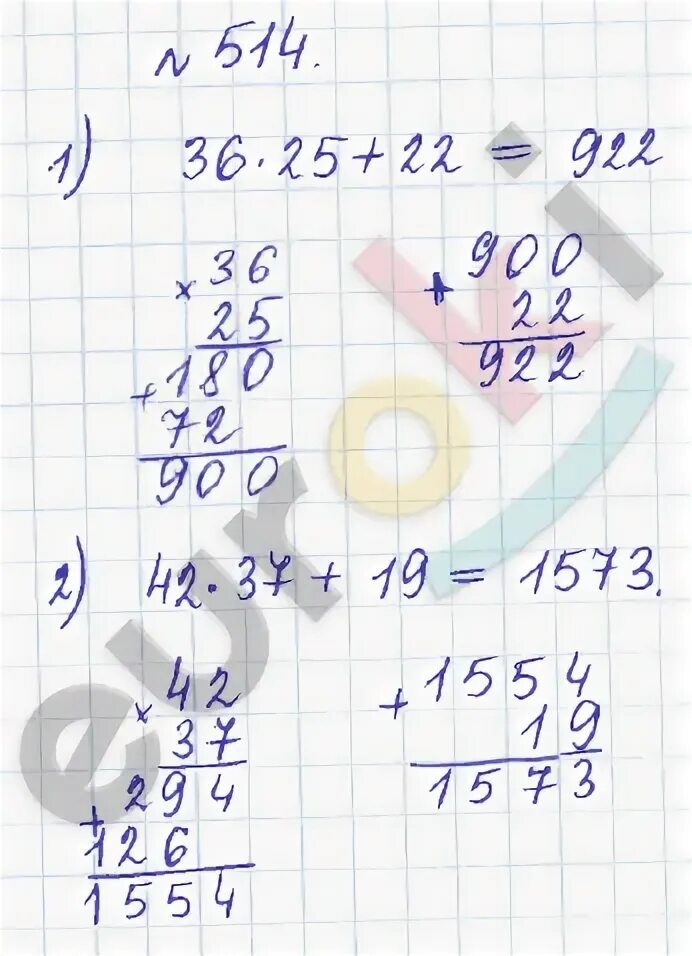 № 514.
1) 36·25+22 = 922
× 36
25
+ 180
72
900
+ 900
22
922
2) 42·37 + 19 = 1573.
× 42
37
+ 294
126
1554
+ 1554
19
1573
euroki